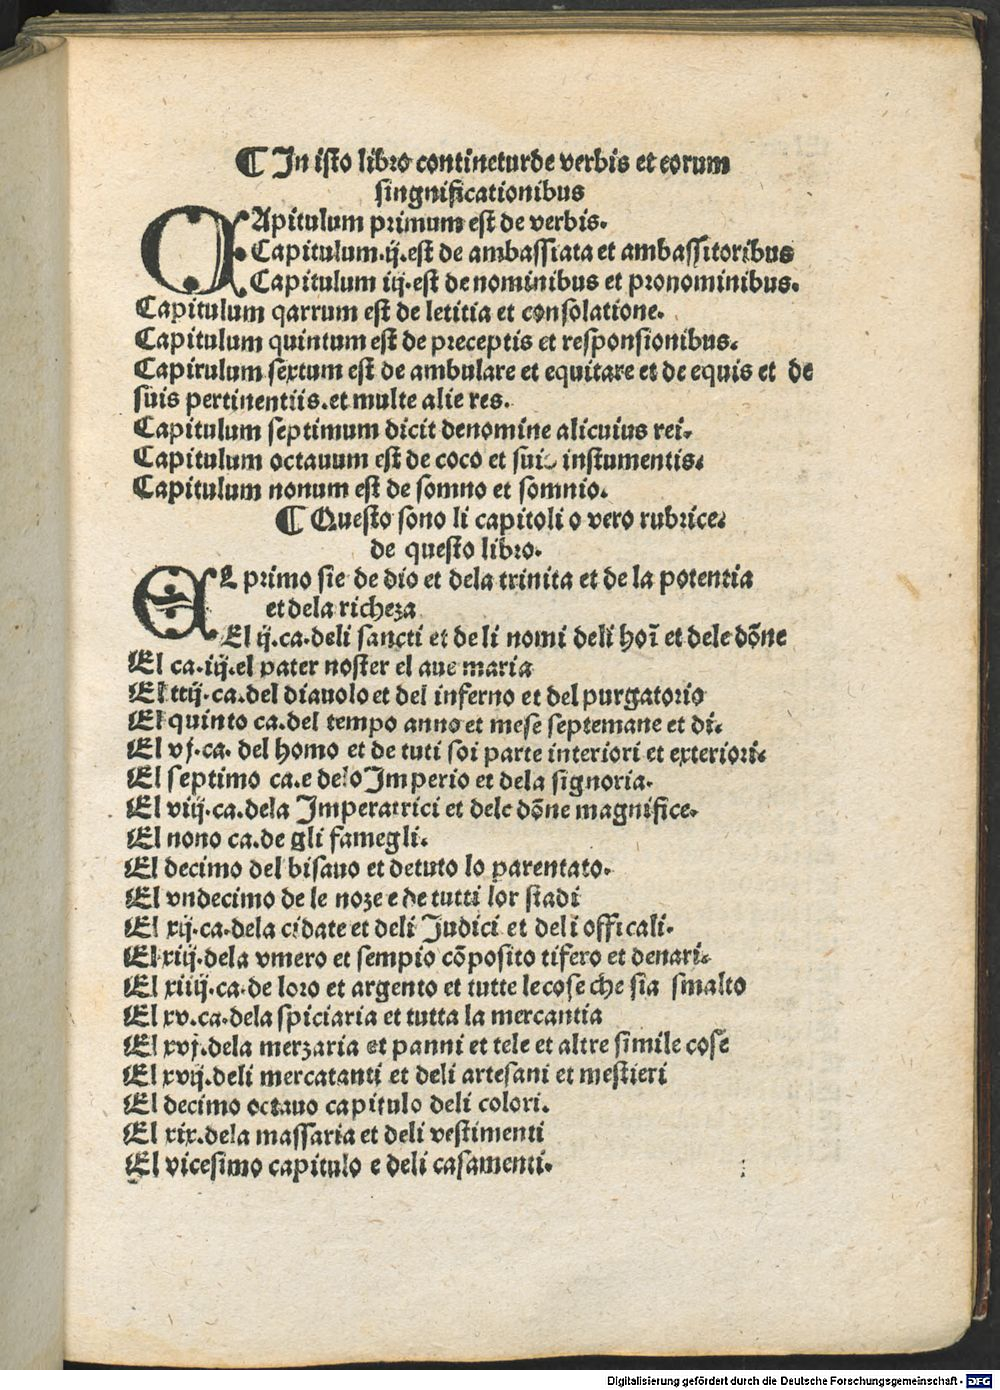 ¶ In isto libro contineturde verbis et eorum
singnificationibus
CApitulum primum est de verbis.
Capitulum.ij.est de ambassiata et ambassitoribus
Capitulum iij.est de nominibus et pronominibus.
Capitulum qarrum est de letitia et consolatione.
Capitulum quintum est de preceptis et responsionibus.
Capirulum sextum est de ambulare et equitare et de equis et de
suis pertinentiis.et multe alie res.
Capitulum septimum dicit denomine alicuius rei.
Capitulum octauum est de coco et suis instumentis.
Capitulum nonum est de somno et somnio.
¶ Questo sono li capitoli o vero rubrice.
de questo libro.
EL primo sie de dio et dela trinita et de la potentia
et dela richeza
El ij.ca.deli sancti et de li nomi deli hoĩ et dele dõne
El ca.iij.el pater noster el aue maria
El ttij.ca.del diauolo et del inferno et del purgatorio
El quinto ca.del tempo anno et mese septemane et di.
El vj.ca. del homo et de tuti soi parte interiori et exteriori.
El septimo ca.e delo Imperio et dela signoria.
El viij.ca.dela Imperatrici et dele dõne magnifice.
El nono ca.de gli famegli.
El decimo del bisauo et detuto lo parentato.
El vndecimo de le noze e de tutti lor stadi
El xij.ca.dela cidate et deli Judici et deli officali.
El xiij.dela vmero et sempio cõposito tifero et denari.
El xiiij.ca.de loro et argento et tutte lecose che sia smalto
El xv.ca.dela spiciaria et tutta la mercantia
El xvj.dela merzaria et panni et tele et altre simile cose
El xvij.deli mercatanti et deli artesani et mestieri
El decimo octauo capitulo deli colori.
El xix.dela massaria et deli vestimenti
El vicesimo capitulo e deli casamenti.
Digitalisierung gefördert durch die Deutsche Forschungsgemeinschaft - DFG